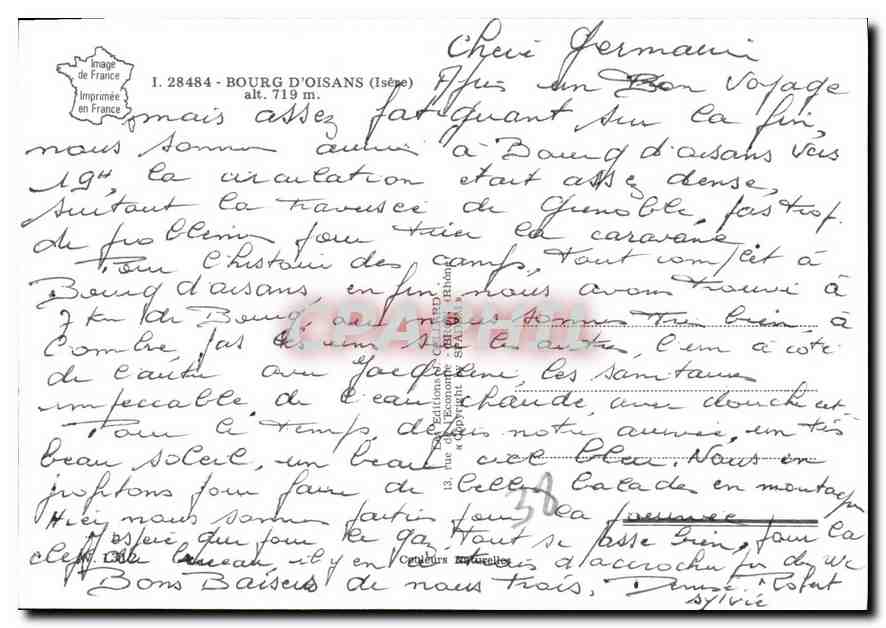 Image
de France
Imprimée
en France
I. 28484 - BOURG D'OISANS (Isère)
alt. 719 m.
Chère Germaine
Après un Bon Voyage
mais assez fatiguant sur la fin,
nous sommes arrivé à Bourg d'oisans vers
19H, la circulation était assez dense,
surtout la traversée de Grenoble, pas trop
de problème pour tirer la caravane.
Pour l'histoire des camps, tout complet à
Bourg d'oisans, enfin nous avons trouvé à
7 km de Bourg, ou nous sommes très bien, à
l'ombre, pas les uns sur les autres, l'un à côté
de l'autre avec Jacqueline, les sanitaires
impeccable de l'eau chaude, avec douche ect-
Pour le temps, depuis notre arrivée, un très
beau soleil, un beau ciel bleu. Nous en
profitons pour faire de belles balades en montagne
Hier, nous sommes partis pour la journée
J'espère que pour le gaz tout se passe bien, pour la
clef du bureau, il y en a d'accroché du WC
Bons Baisers de nous trois. Denise. Robert
Sylvie
Les Editions CELLARD
13, rue de l'Economie - BRON (Rhône)
« Copyright by SPADEM »
CPAPHIL
38
Couleurs Naturelles